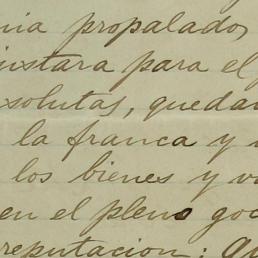 nia propalados
justara para el
solutas, quedan
la franca y
los bienes y va
en el pleno goc
reputacion; qu